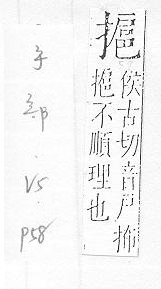 侯古切音戶抪
不順理也
手部·V5·P58